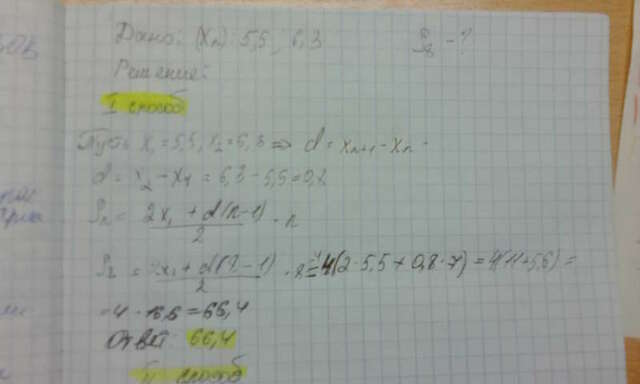 Дано: (Xn): 5,5; 6,3 S8 - ?
Решение:
I способ
Пусть x1 = 5,5, x2 = 6,3 => d = xn+1 - xn
d = x2 - x1 = 6,3 - 5,5 = 0,8
Sn = 2x1 + d(n-1) / 2 · n
S8 = 2x1 + d(8-1) / 2 · 8 = 4(2·5,5 + 0,8·7) = 4(11+5,6) =
= 4 · 16,6 = 66,4
Ответ: 66,4
II способ